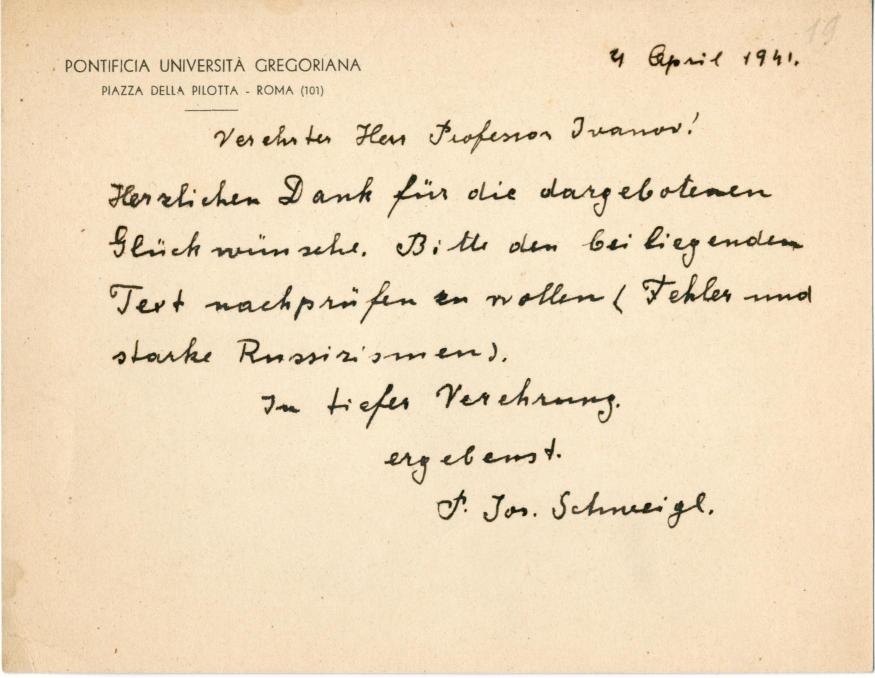 19
PONTIFICIA UNIVERSITÀ GREGORIANA
PIAZZA DELLA PILOTTA - ROMA (101)
4 April 1941.
Verehrter Herr Professor Ivanov!
Herzlichen Dank für die dargebotenen
Glückwünsche. Bitte den beiliegenden
Text nachprüfen zu wollen (Fehler und
starke Russizismen).
In tiefer Verehrung.
ergebenst.
P. Jos. Schweigl.